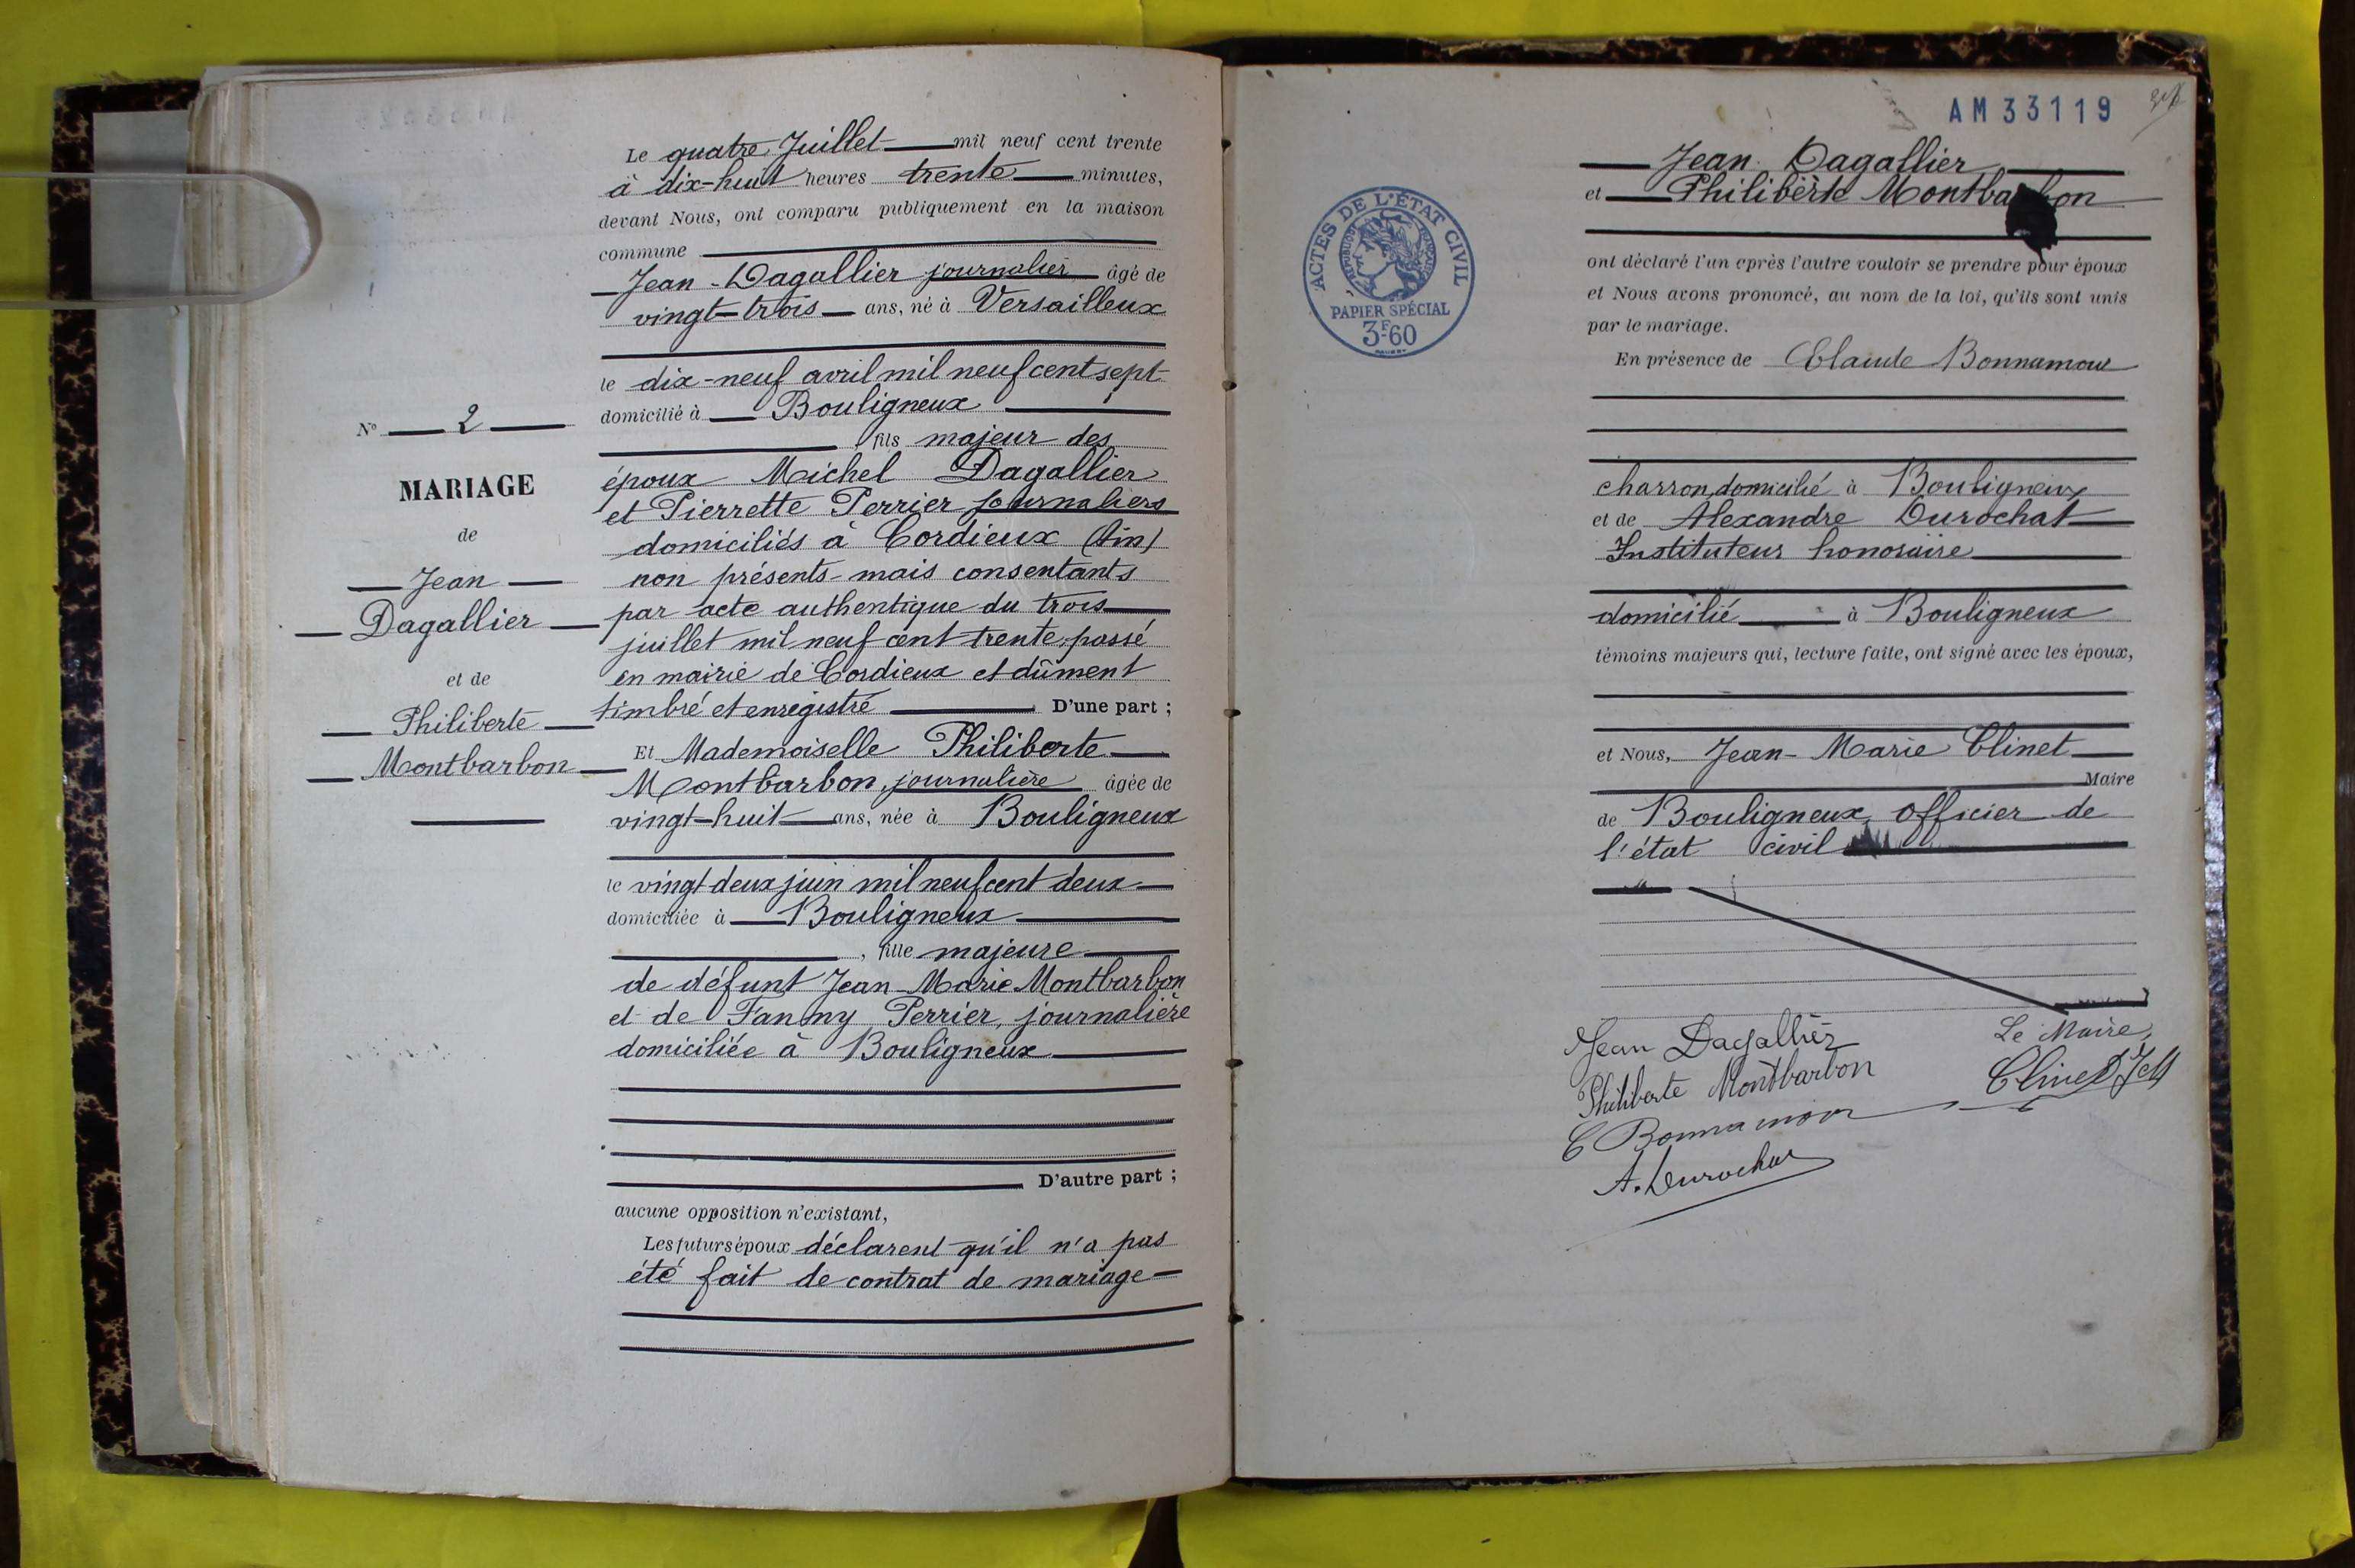 Le quatre Juillet mil neuf cent trente
à dix-huit heures trente minutes,
devant Nous, ont comparu publiquement en la maison
commune
Jean Dagallier journalier âgé de
vingt-trois ans, né à Versailleux
le dix-neuf avril mil neuf cent sept
domicilié à Bouligneux
fils majeur des
époux Michel Dagallier
et Pierrette Perrier journaliers
domiciliés à Cordieux (Ain)
non présents mais consentants
par acte authentique du trois
juillet mil neuf cent trente passé
en mairie de Cordieux et dûment
timbré et enregistré D'une part ;
Et Mademoiselle Philiberte
Montbarbon, journalière âgée de
vingt-huit ans, née à Bouligneux
le vingt deux juin mil neuf cent deux
domiciliée à Bouligneux
, fille majeure
de défunt Jean-Marie Montbarbon
et de Fanny Perrier, journalière
domiciliée à Bouligneux
D'autre part ;
aucune opposition n'existant,
Les futurs époux déclarent qu'il n'a pas
été fait de contrat de mariage
N° 2
MARIAGE
de
Jean
Dagallier
et de
Philiberte
Montbarbon
AM 33119
ACTES DE L'ÉTAT CIVIL
RÉPUBLIQUE FRANÇAISE
PAPIER SPÉCIAL
3F60
Jean Dagallier
et Philiberte Montbarbon
ont déclaré l'un après l'autre vouloir se prendre pour époux
et Nous avons prononcé, au nom de la loi, qu'ils sont unis
par le mariage.
En présence de Claude Bonnamour
charron, domicilié à Bouligneux
et de Alexandre Durochat
Instituteur honoraire
domicilié à Bouligneux
témoins majeurs qui, lecture faite, ont signé avec les époux,
et Nous, Jean-Marie Clinet
Maire
de Bouligneux, officier de
l'état civil
Jean Dagallier
Philiberte Montbarbon
C Bonnamour
A. Durochat
Le Maire,
Clinet JM